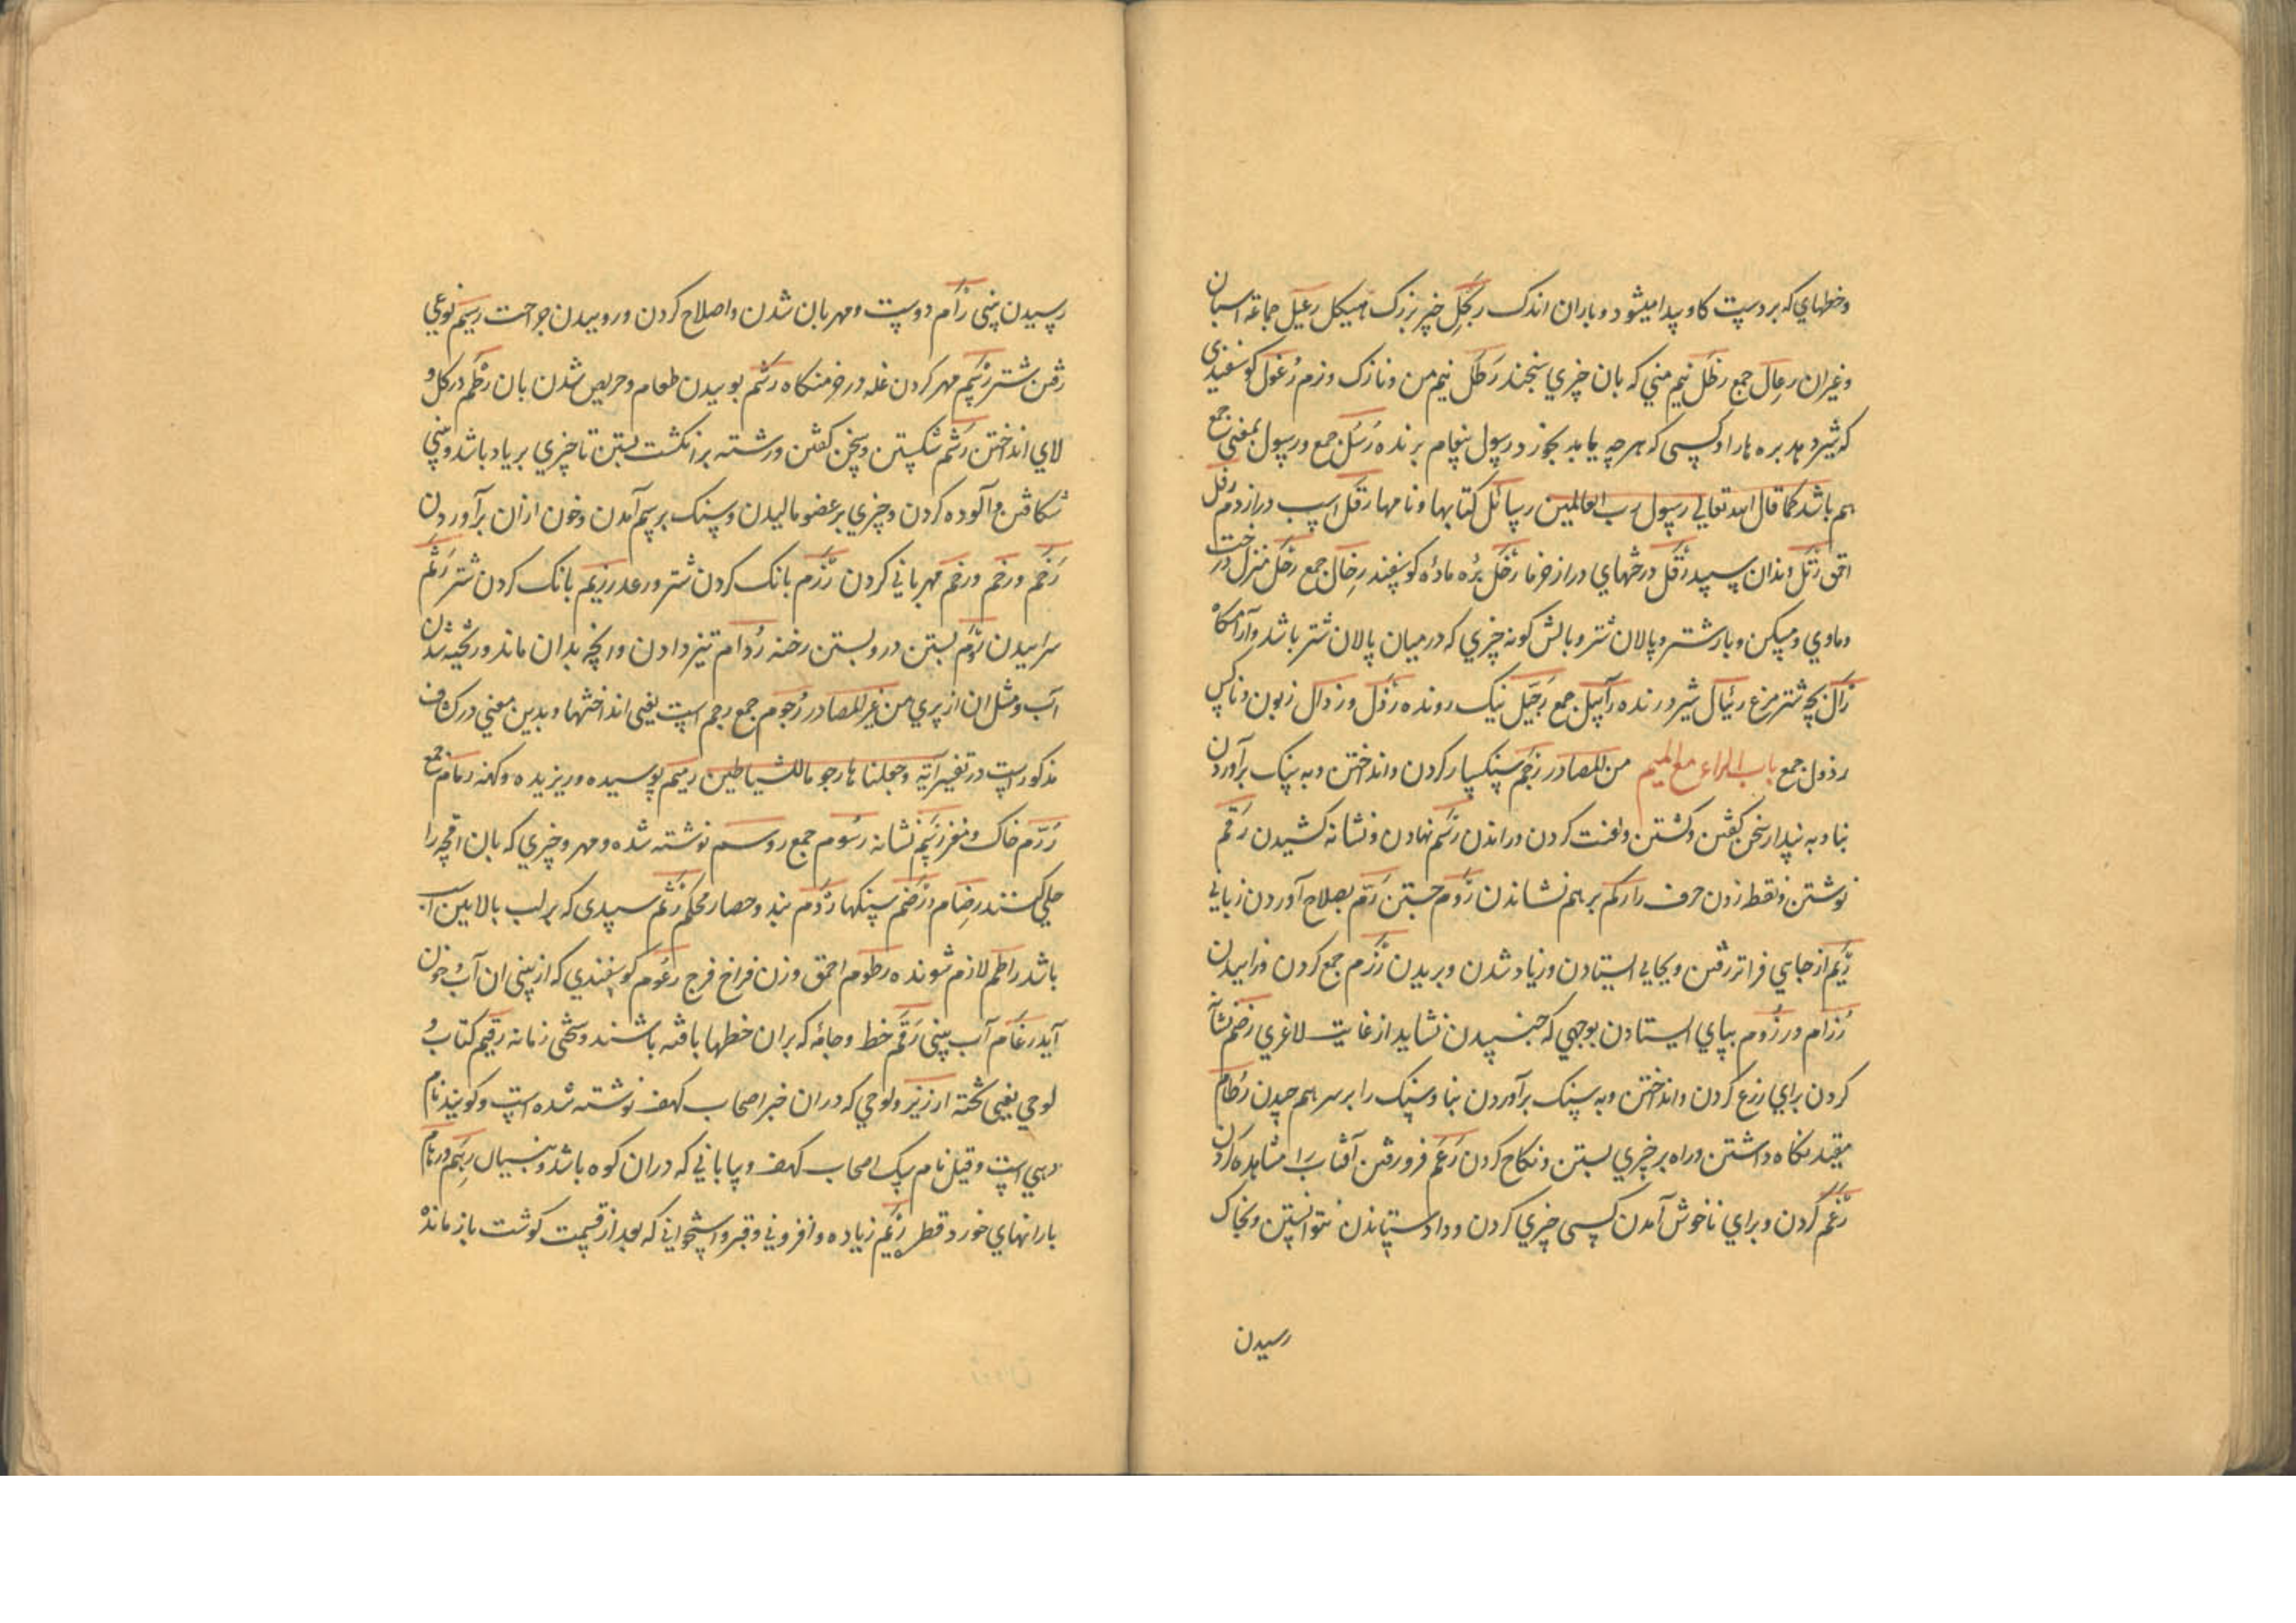 وخطهاي که بر دست کاو پیدا میشود و باران اندک رجل خیر بزرک هیکل رعیل جماعة اسبان
وغیران رعال جمع رطل نیم مني که بان چیزي سنجند رطل نیم من و نازک و نرم رغول کوسفندی
که شیر دهد بره ها را و کسی که هر چه بیابد بخورد رسول پیغام برنده رسل جمع و رسول بمعنی جمع
هم باشد کما قال الله تعالی رسول رب العالمین رسائل کتابها و نامها رفل اسپ دراز دم رفل
احمق رتل دندان سپید رقل درختهاي دراز خرما رخل بره ماده کوسفند رخال جمع رحل منزل و رخت
وماوي ومسکن وبار شتر و پالان شتر و بالش کونه چیزي که در میان پالان شتر باشد و آرامکاه
رال بچه شتر مرغ رئبال شیر درنده رآبیل جمع رجیل نیک رونده رذل ورذال زبون و ناکس
رذول جمع باب الراء مع المیم من المصادر رجم سنکسار کردن و انداختن و به سنک برآوردن
بنا و به پندار سخن کفتن و کشتن و لعنت کردن و راندن رسم نهادن و نشانه کشیدن رقم
نوشتن و نقطه زدن حرف را رکم بر هم نشاندن روم جستن رم بصلاح آوردن زبانی
ریم از جاي فراتر رفتن و بجایی ایستادن و زیاد شدن و بریدن رزم جمع کردن
رزام و رزوم بپاي ایستادن بوجهي که جنبیدن نشاید از غایت لاغري رضم
کردن براي زرع کردن و انداختن و به سنک برآوردن بنا و سنک را بر سر هم چیدن رطام
مقید نکاه داشتن و راه بر چیزي بستن و نکاح کردن رغم فرو رفتن آفتاب را مشاهده کردن
رغم کردن و براي ناخوش آمدن کسی چیزي کردن و داد ستاندن نتوانستن و بخاک
رسیدن
رسیدن بینی رام دوست و مهربان شدن و اصلاح کردن و روییدن جراحت رسیم نوعي
رفتن شتر رشم مهر کردن غله در خرمنکاه رشم بوییدن طعام و حریص شدن بان رطم در کل و
لاي انداختن رتم شکستن و سخن کفتن و رشته بر انکشت بستن تا چیزي بر یاد باشد رثم بینی
شکافتن و آلوده کردن و چیزي بر عضو مالیدن و سنک بر سم آمدن و خون ازان برآوردن
رحم و رحم و رخم مهرباني کردن رزم بانک کردن شتر و رعد رزیم بانک کردن شتر رنم
سراییدن ردم بستن در و بستن رخنه ردام تیز دادن و رنجه بدان ماند و ریخته شدن
آب و مثل ان از پري من غیر المصادر رجوم جمع رجم است یعنی انداختنها و بدین معني در کشاف
مذکور است در تفسیر آیة وجعلناها رجوما للشیاطین رمیم پوسیده و ریزیده و کهنه رمام جمع
رم خاک و مغز رسم نشانه رسوم جمع روسم نوشته شده و مهر و چیزي که بان اقچه را
جلي کنند رضام و رضم سنکها ردم بند و حصار محکم رثم سپیدی که بر لب بالایین اسب
باشد راطم لازم شونده رطوم احمق و زن فراخ فرج رعوم کوسفندي که از بینی ان آب چون
آید رغام آب بینی رقم خط و جامه که بران خطها بافته باشند و سختی زمانه رقیم کتاب و
لوحي یعنی تخته ارزیز و لوحي که دران خبر اصحاب کهف نوشته شده است و کویند نام
دیهي است و قیل نام سک اصحاب کهف و بیاباني که دران کوه باشد و رهم و رهام
بارانهاي خورد قطره ریم زیاده و افزوني و قبر و استخواني که بعد از قسمت کوشت باز ماند